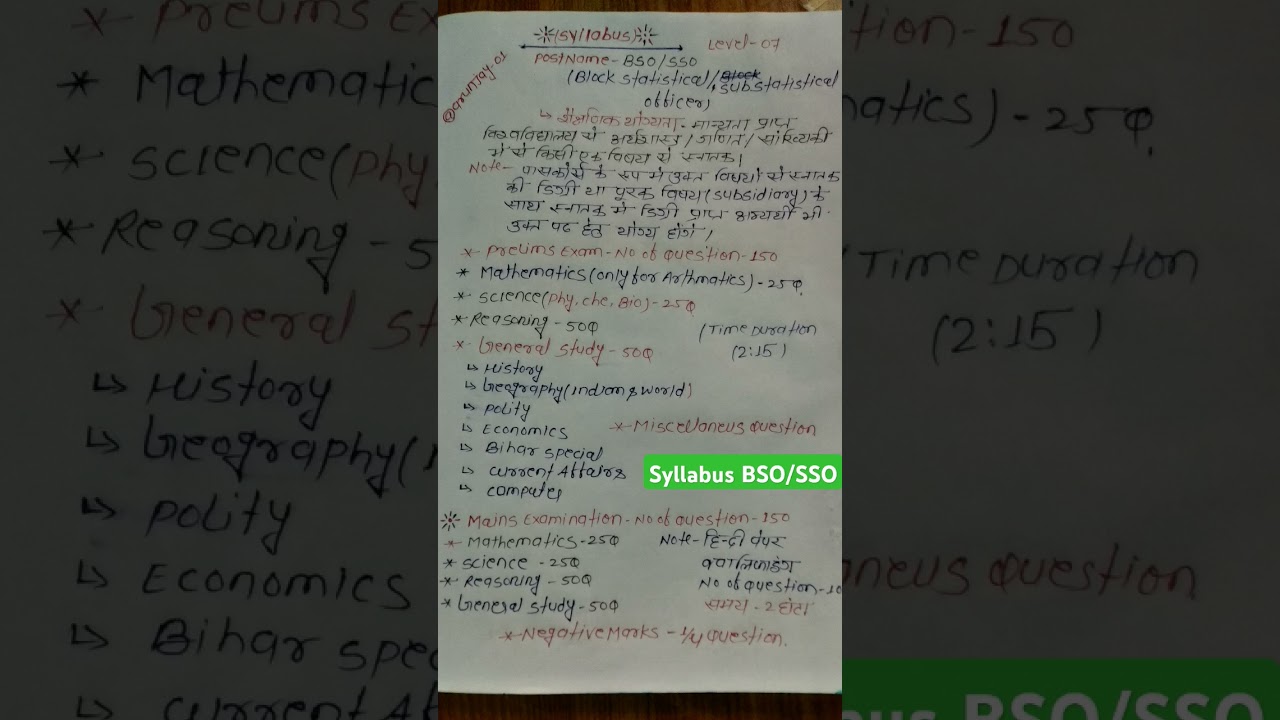 (Syllabus)
Level-07
@arunjay-01
Post Name - BSO/SSO
(Block statistical/Block substatistical
officer)
↳ शैक्षणिक योग्यता - मान्यता प्राप्त
विश्वविद्यालय से अर्थशास्त्र/गणित/सांख्यिकी
में से किसी एक विषय से स्नातक।
Note - पासकोर्स के रूप में उक्त विषयों से स्नातक
की डिग्री या पूरक विषय (subsidiary) के
साथ स्नातक में डिग्री प्राप्त अभ्यर्थी भी
उक्त पद हेतु योग्य होंगे।
* Prelims Exam - No of Question - 150
* Mathematics (only for Arthmatics) - 25Q.
* Science (Phy, che, Bio) - 25Q
* Reasoning - 50Q
(Time Duration
(2:15)
* General Study - 50Q
↳ History
↳ Geography (Indian & World)
↳ Polity
↳ Economics
* Miscellaneus Question
↳ Bihar Special
↳ Current Affairs
↳ Computer
Syllabus BSO/SSO
* Mains Examination - No of Question - 150
* Mathematics - 25Q
Note - हिन्दी पेपर
* Science - 25Q
क्वालिफाइंग
* Reasoning - 50Q
No of Question - 10
* General Study - 50Q
समय - 2 घंटा
* Negative Marks - 1/4 Question.